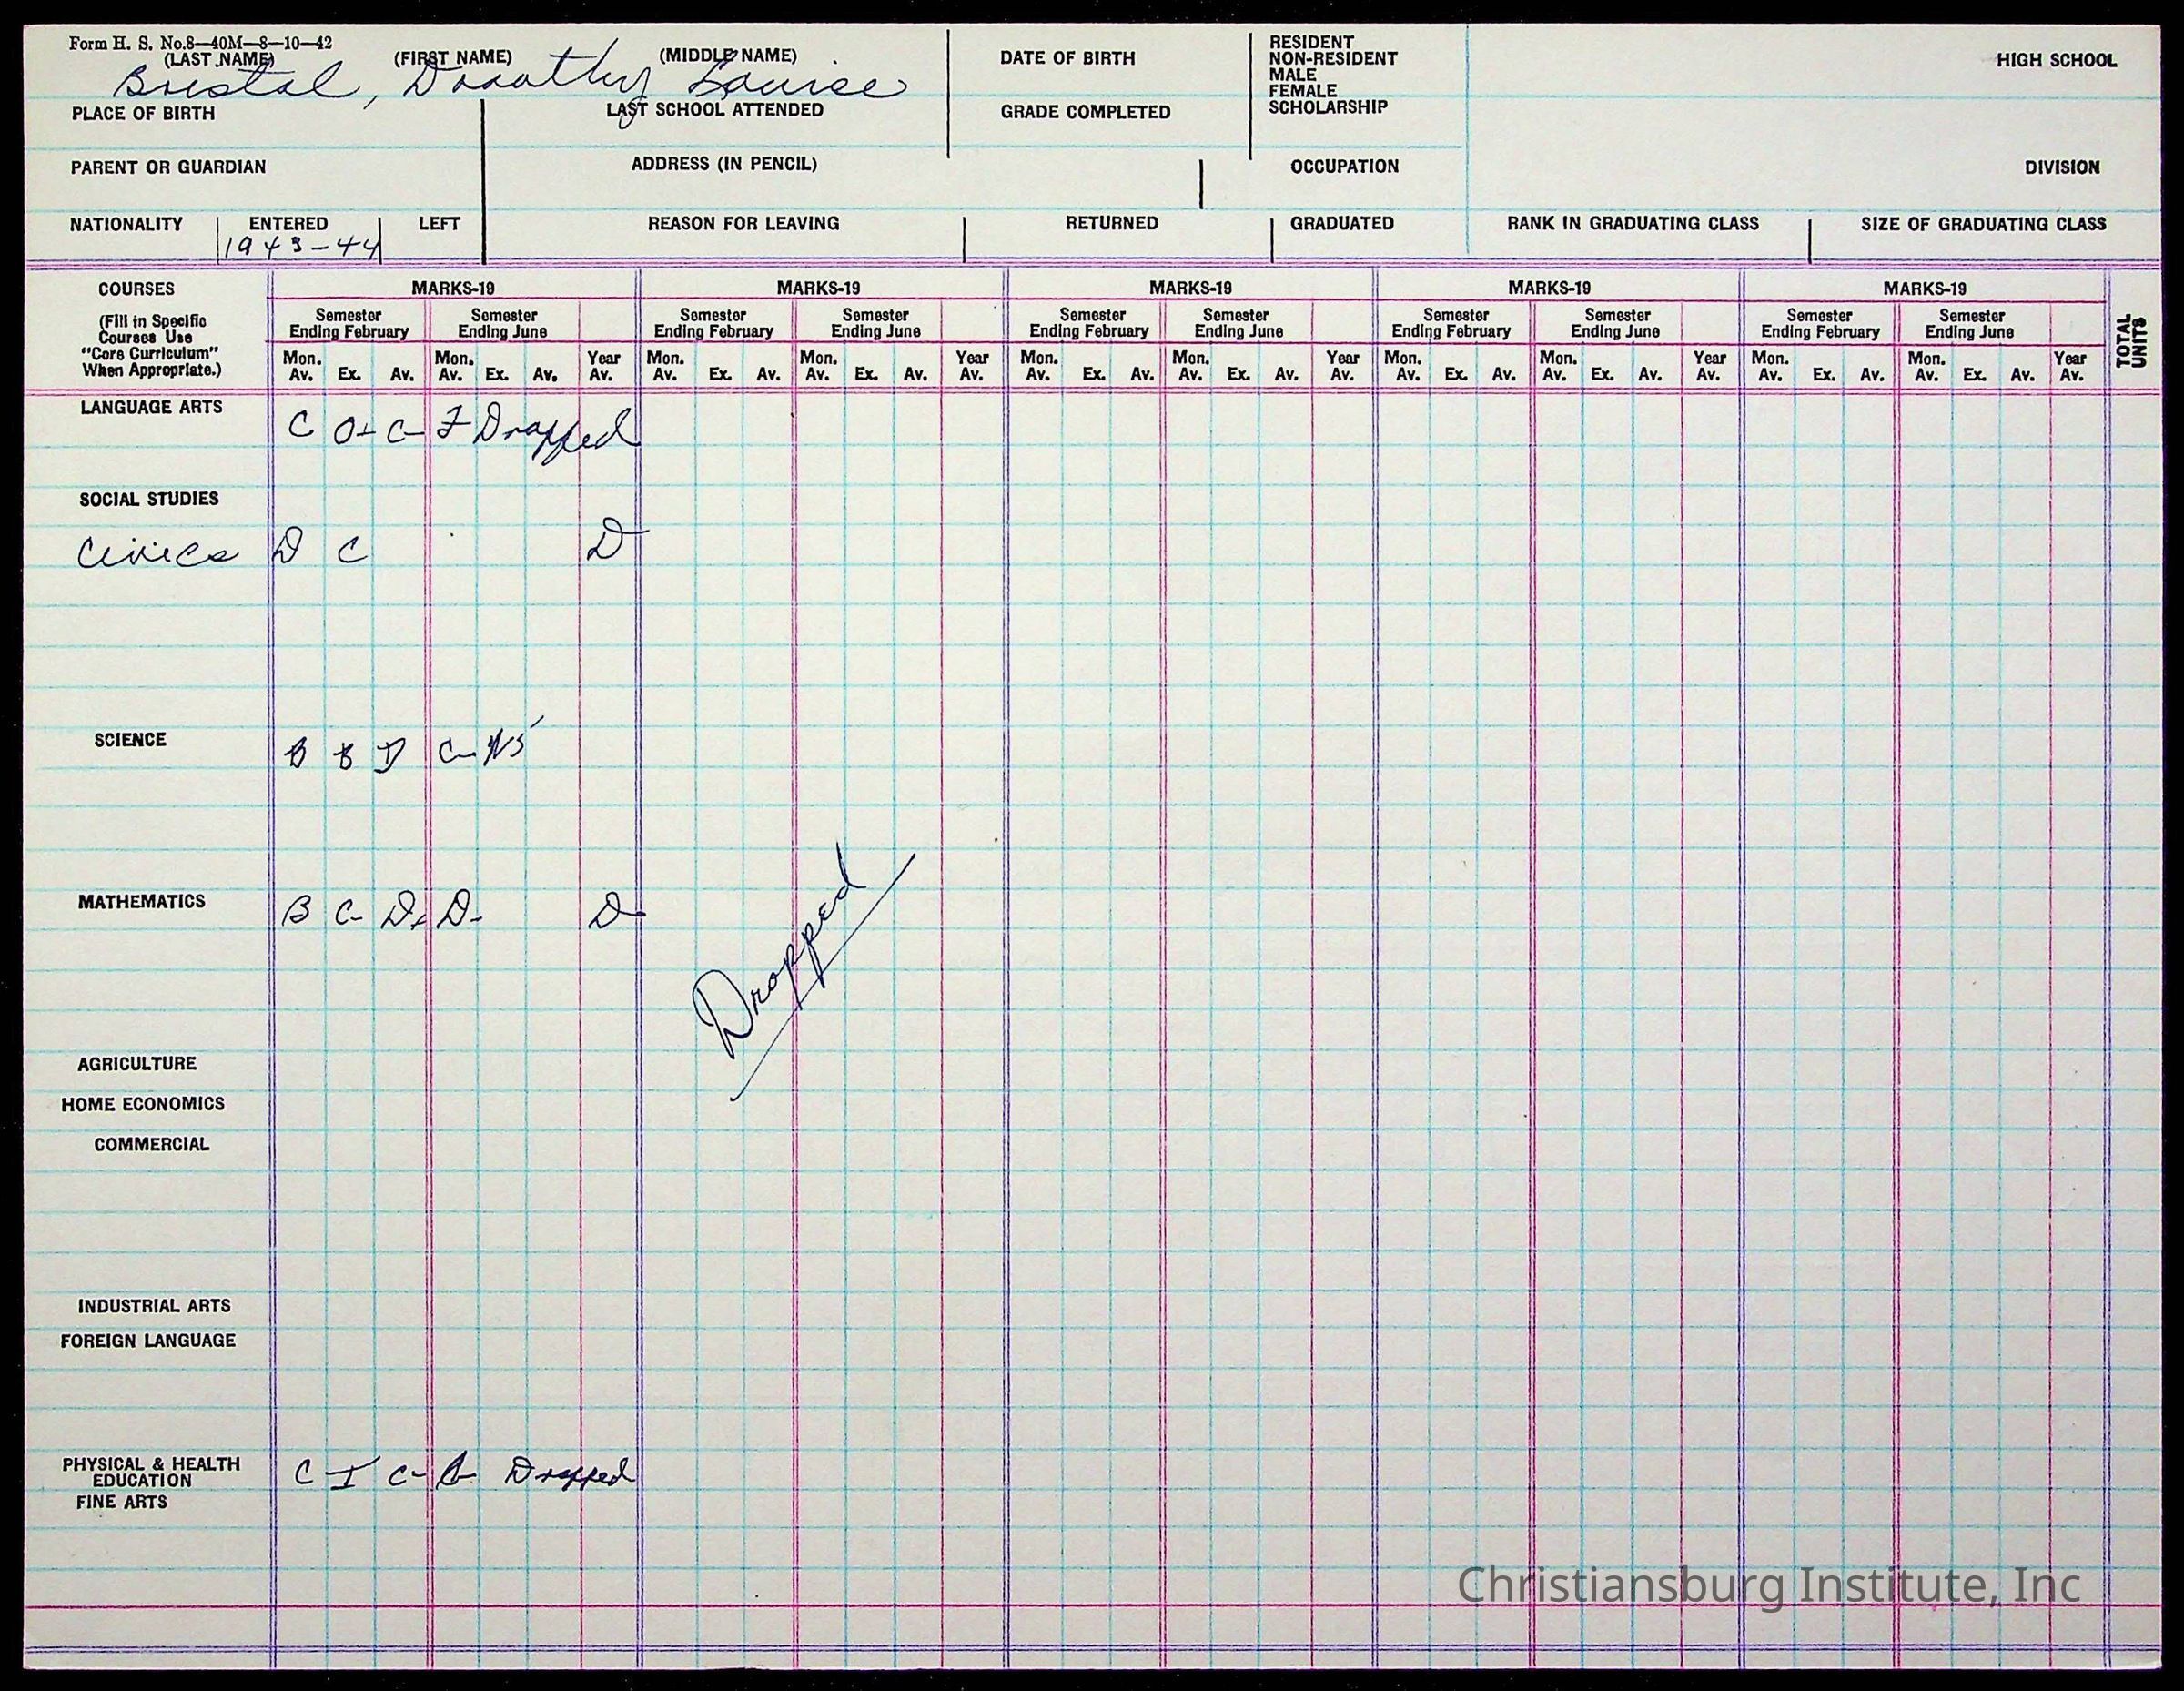 Form H. S. No.8—40M—8—10—42
(LAST NAME) (FIRST NAME) (MIDDLE NAME) DATE OF BIRTH RESIDENT HIGH SCHOOL
NON-RESIDENT
MALE
FEMALE
SCHOLARSHIP
Brestal, Dorothy Louise
PLACE OF BIRTH LAST SCHOOL ATTENDED GRADE COMPLETED
PARENT OR GUARDIAN ADDRESS (IN PENCIL) OCCUPATION DIVISION
NATIONALITY ENTERED LEFT REASON FOR LEAVING RETURNED GRADUATED RANK IN GRADUATING CLASS SIZE OF GRADUATING CLASS
1943-44
COURSES MARKS-19 MARKS-19 MARKS-19 MARKS-19 MARKS-19
(Fill in Specific Courses Use "Core Curriculum" When Appropriate.)
Semester Ending February Semester Ending June Semester Ending February Semester Ending June Semester Ending February Semester Ending June Semester Ending February Semester Ending June Semester Ending February Semester Ending June TOTAL UNITS
Mon. Av. Ex. Av. Mon. Av. Ex. Av. Year Av. Mon. Av. Ex. Av. Mon. Av. Ex. Av. Year Av. Mon. Av. Ex. Av. Mon. Av. Ex. Av. Year Av. Mon. Av. Ex. Av. Mon. Av. Ex. Av. Year Av. Mon. Av. Ex. Av. Mon. Av. Ex. Av. Year Av.
LANGUAGE ARTS C C- F Dropped
SOCIAL STUDIES
Civics D C D
SCIENCE B B D C- NS
MATHEMATICS B C- D- D
Dropped
AGRICULTURE
HOME ECONOMICS
COMMERCIAL
INDUSTRIAL ARTS
FOREIGN LANGUAGE
PHYSICAL & HEALTH EDUCATION C I C- Dropped
FINE ARTS
Christiansburg Institute, Inc